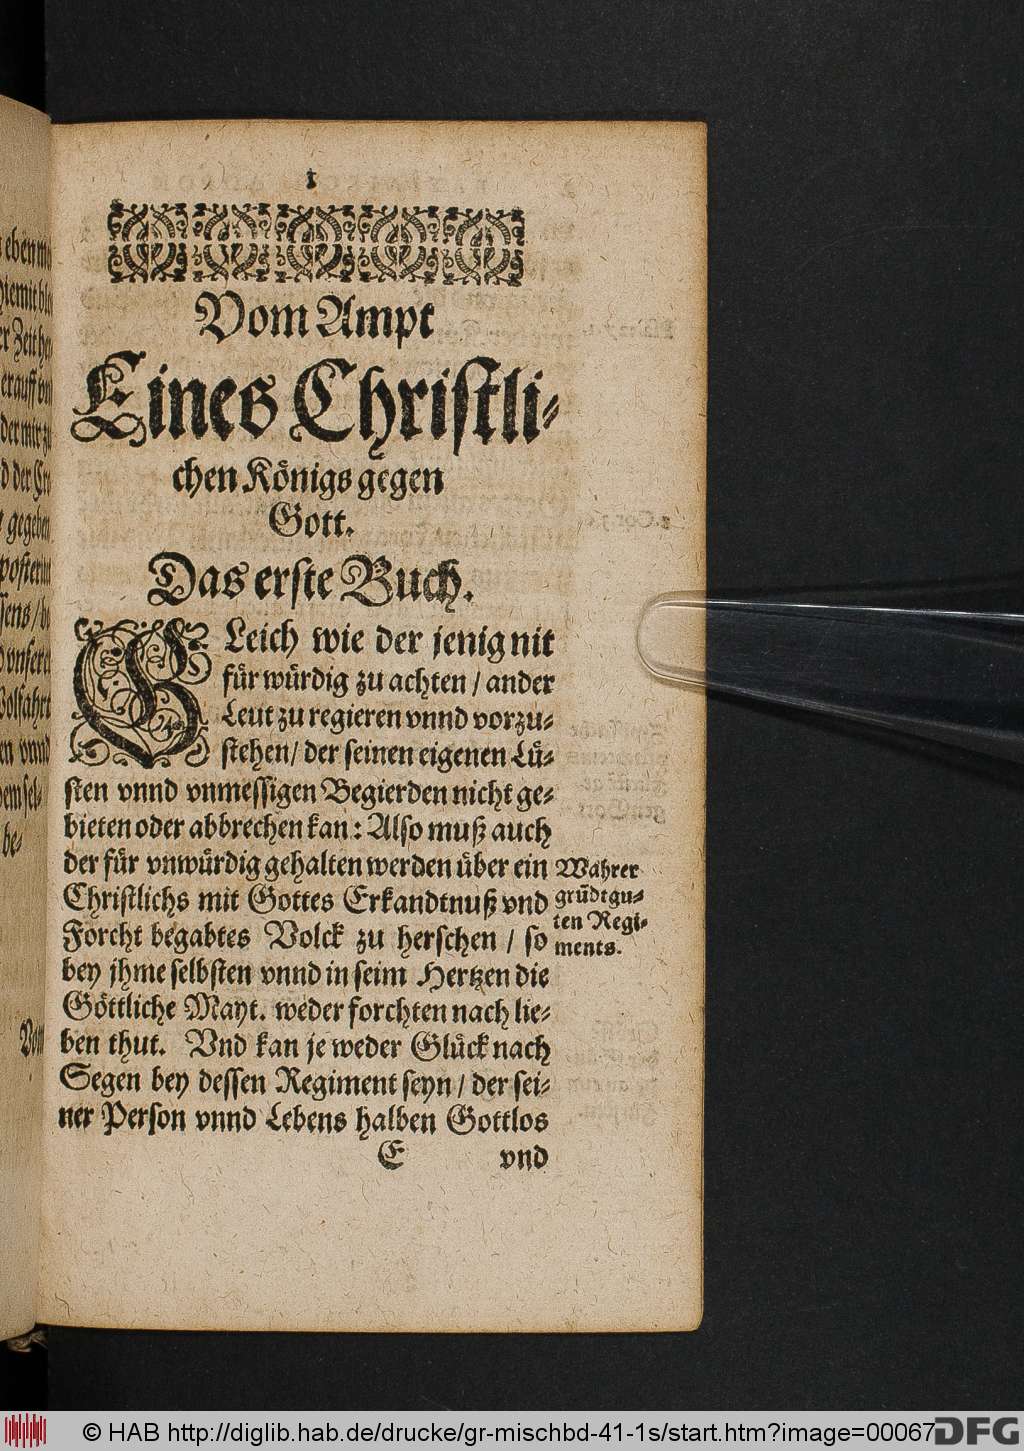 1
Vom Ampt
Eines Christli-
chen Königs gegen
Gott.
Das erste Buch.
GLeich wie der jenig nit
für würdig zu achten / ander
Leut zu regieren vnnd vorzu-
stehen / der seinen eigenen Lü-
sten vnnd vnmessigen Begierden nicht ge-
bieten oder abbrechen kan: Also muß auch
der für vnwürdig gehalten werden über ein
Christlichs mit Gottes Erkandtnuß vnd
Forcht begabtes Volck zu herschen / so
bey jhme selbsten vnnd in seim Hertzen die
Göttliche Mayt. weder forchten nach lie-
ben thut. Vnd kan je weder Glück nach
Segen bey dessen Regiment seyn / der sei-
ner Person vnnd Lebens halben Gottlos
E vnd
Wahrer
grūdt gu-
ten Regi-
ments.
eben
hiemit
er Zeit
erauff
der mir zu
d der
gegeben
sens /
vnsere
Wolfahrt
en vnnd
dem sel-
be-
Vom
© HAB http://diglib.hab.de/drucke/gr-mischbd-41-1s/start.htm?image=00067
DFG